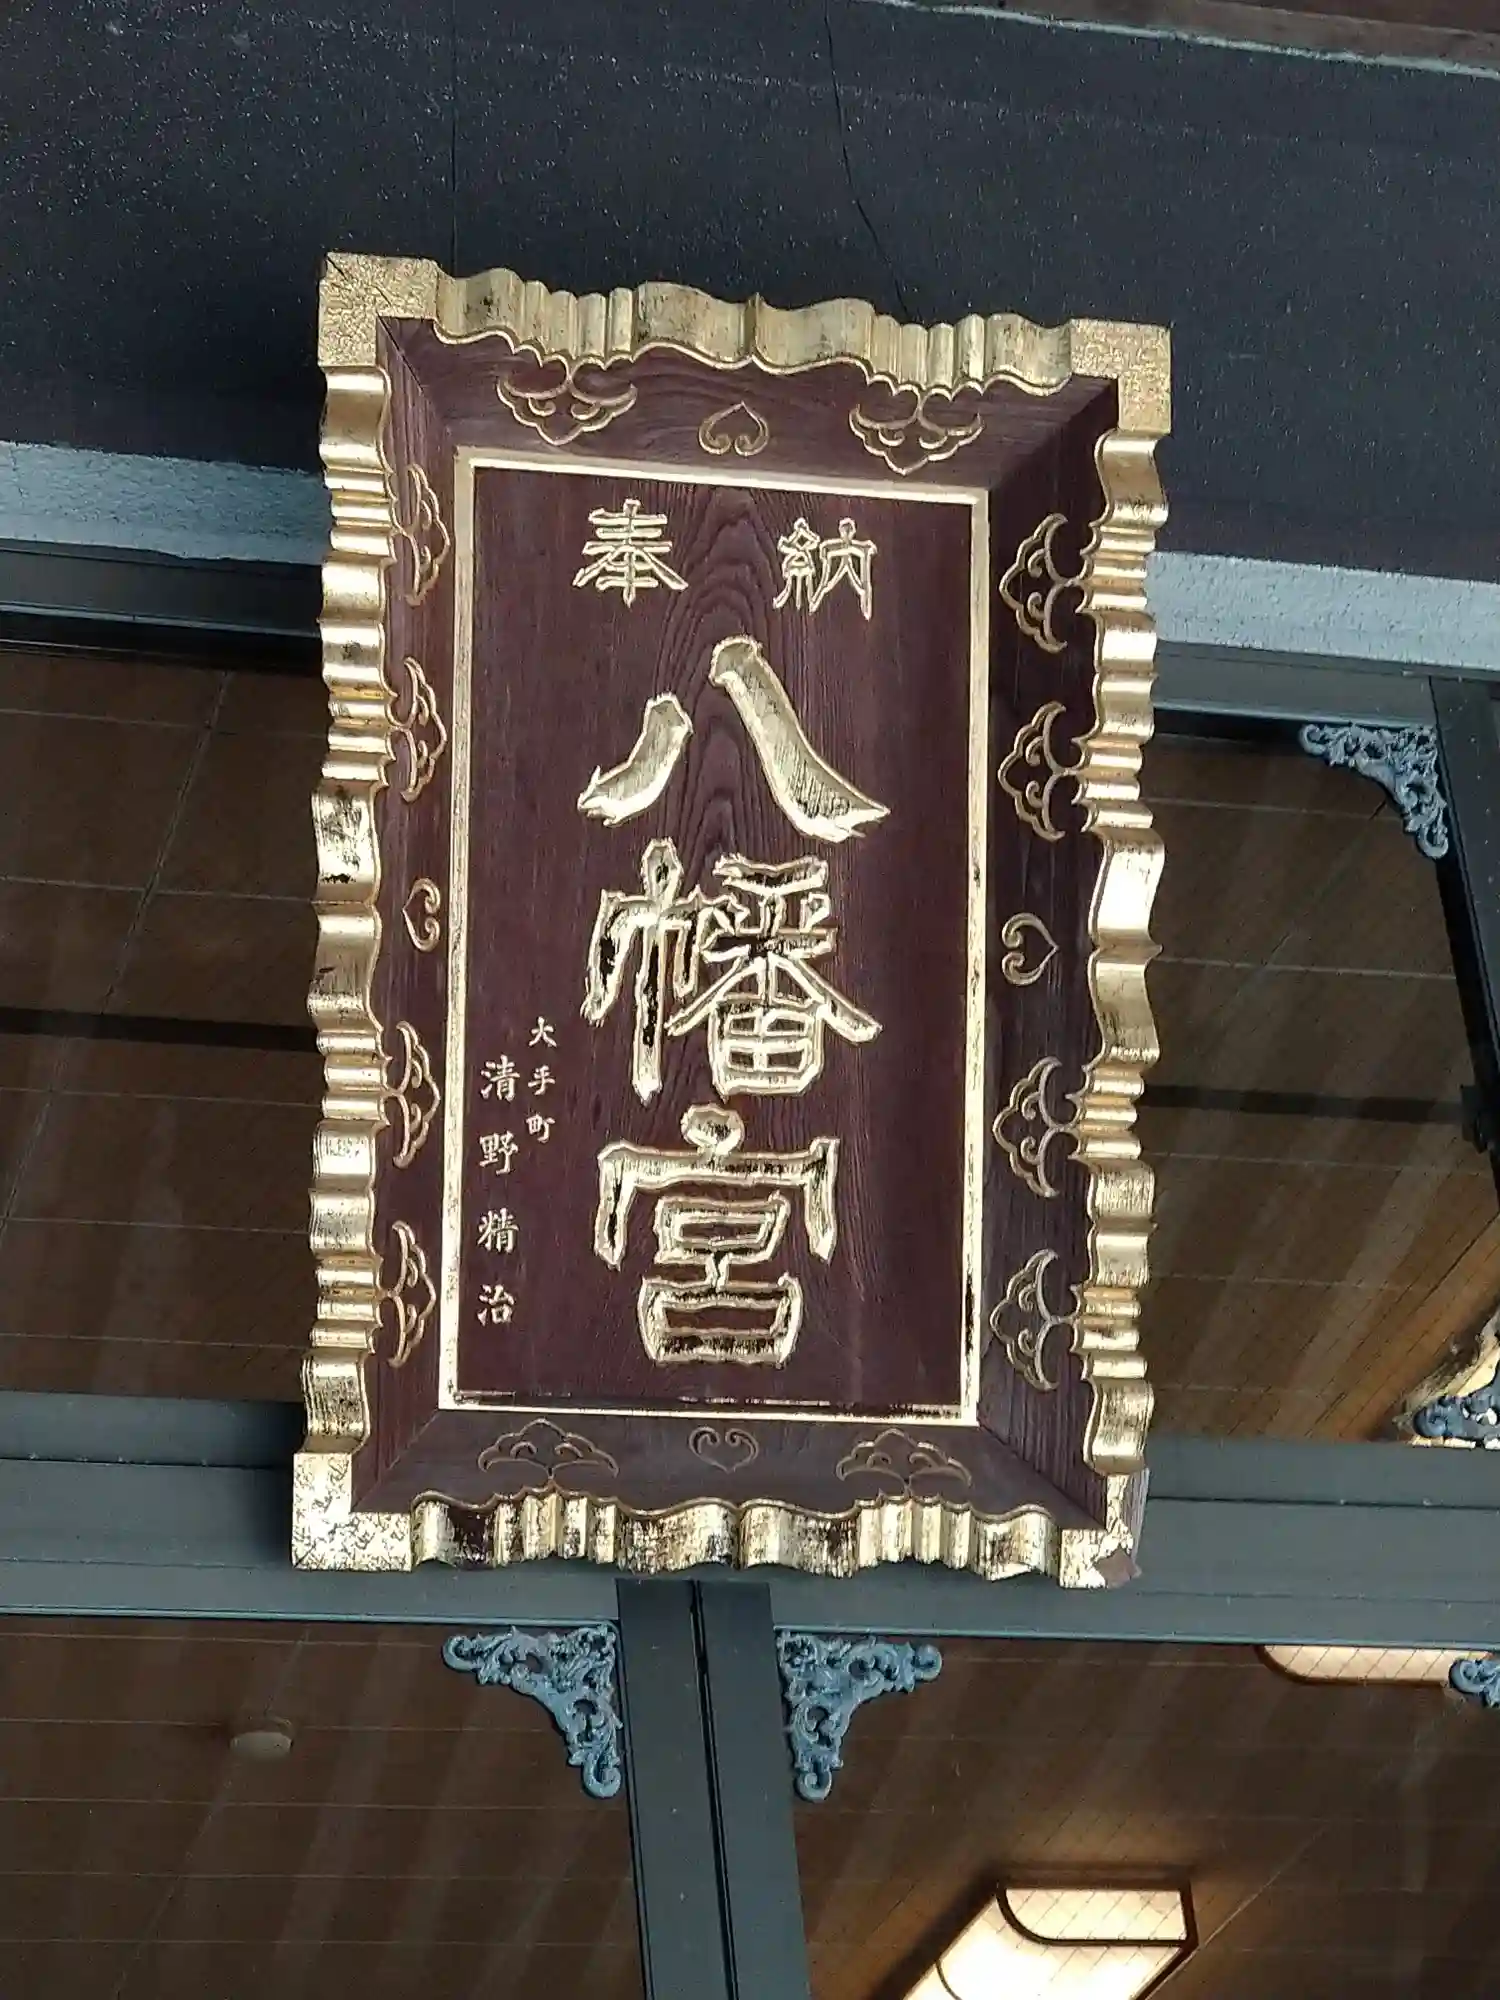 奉納
八幡宮
大手町
清野精治